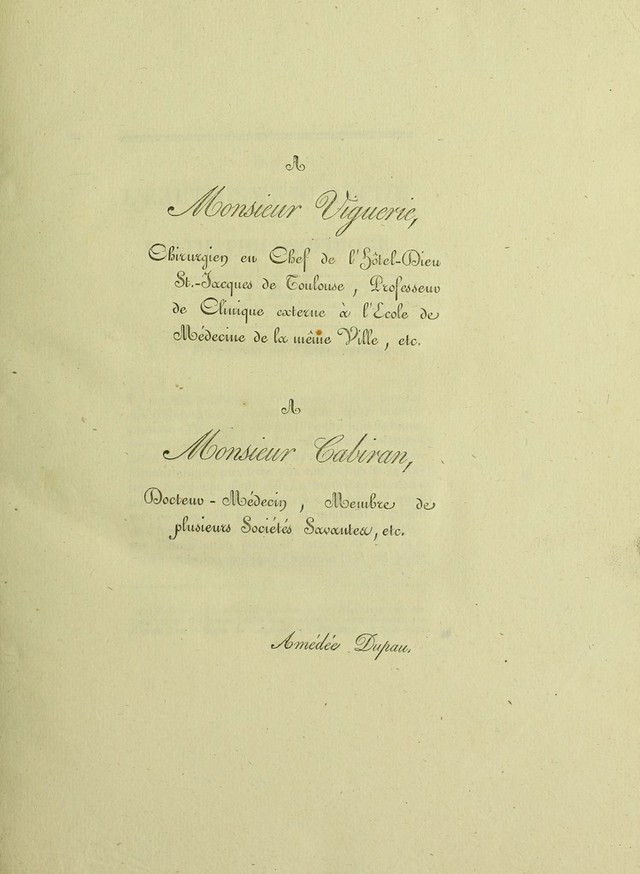 A
Monsieur Viguerie,
Chirurgien en Chef de l'Hôtel-Dieu
St.-Jacques de Toulouse, Professeur
de Clinique externe à l'École de
Médecine de la même Ville, etc.
A
Monsieur Cabiran,
Docteur-Médecin, Membre de
plusieurs Sociétés Savantes, etc.
Amédée Dupau.